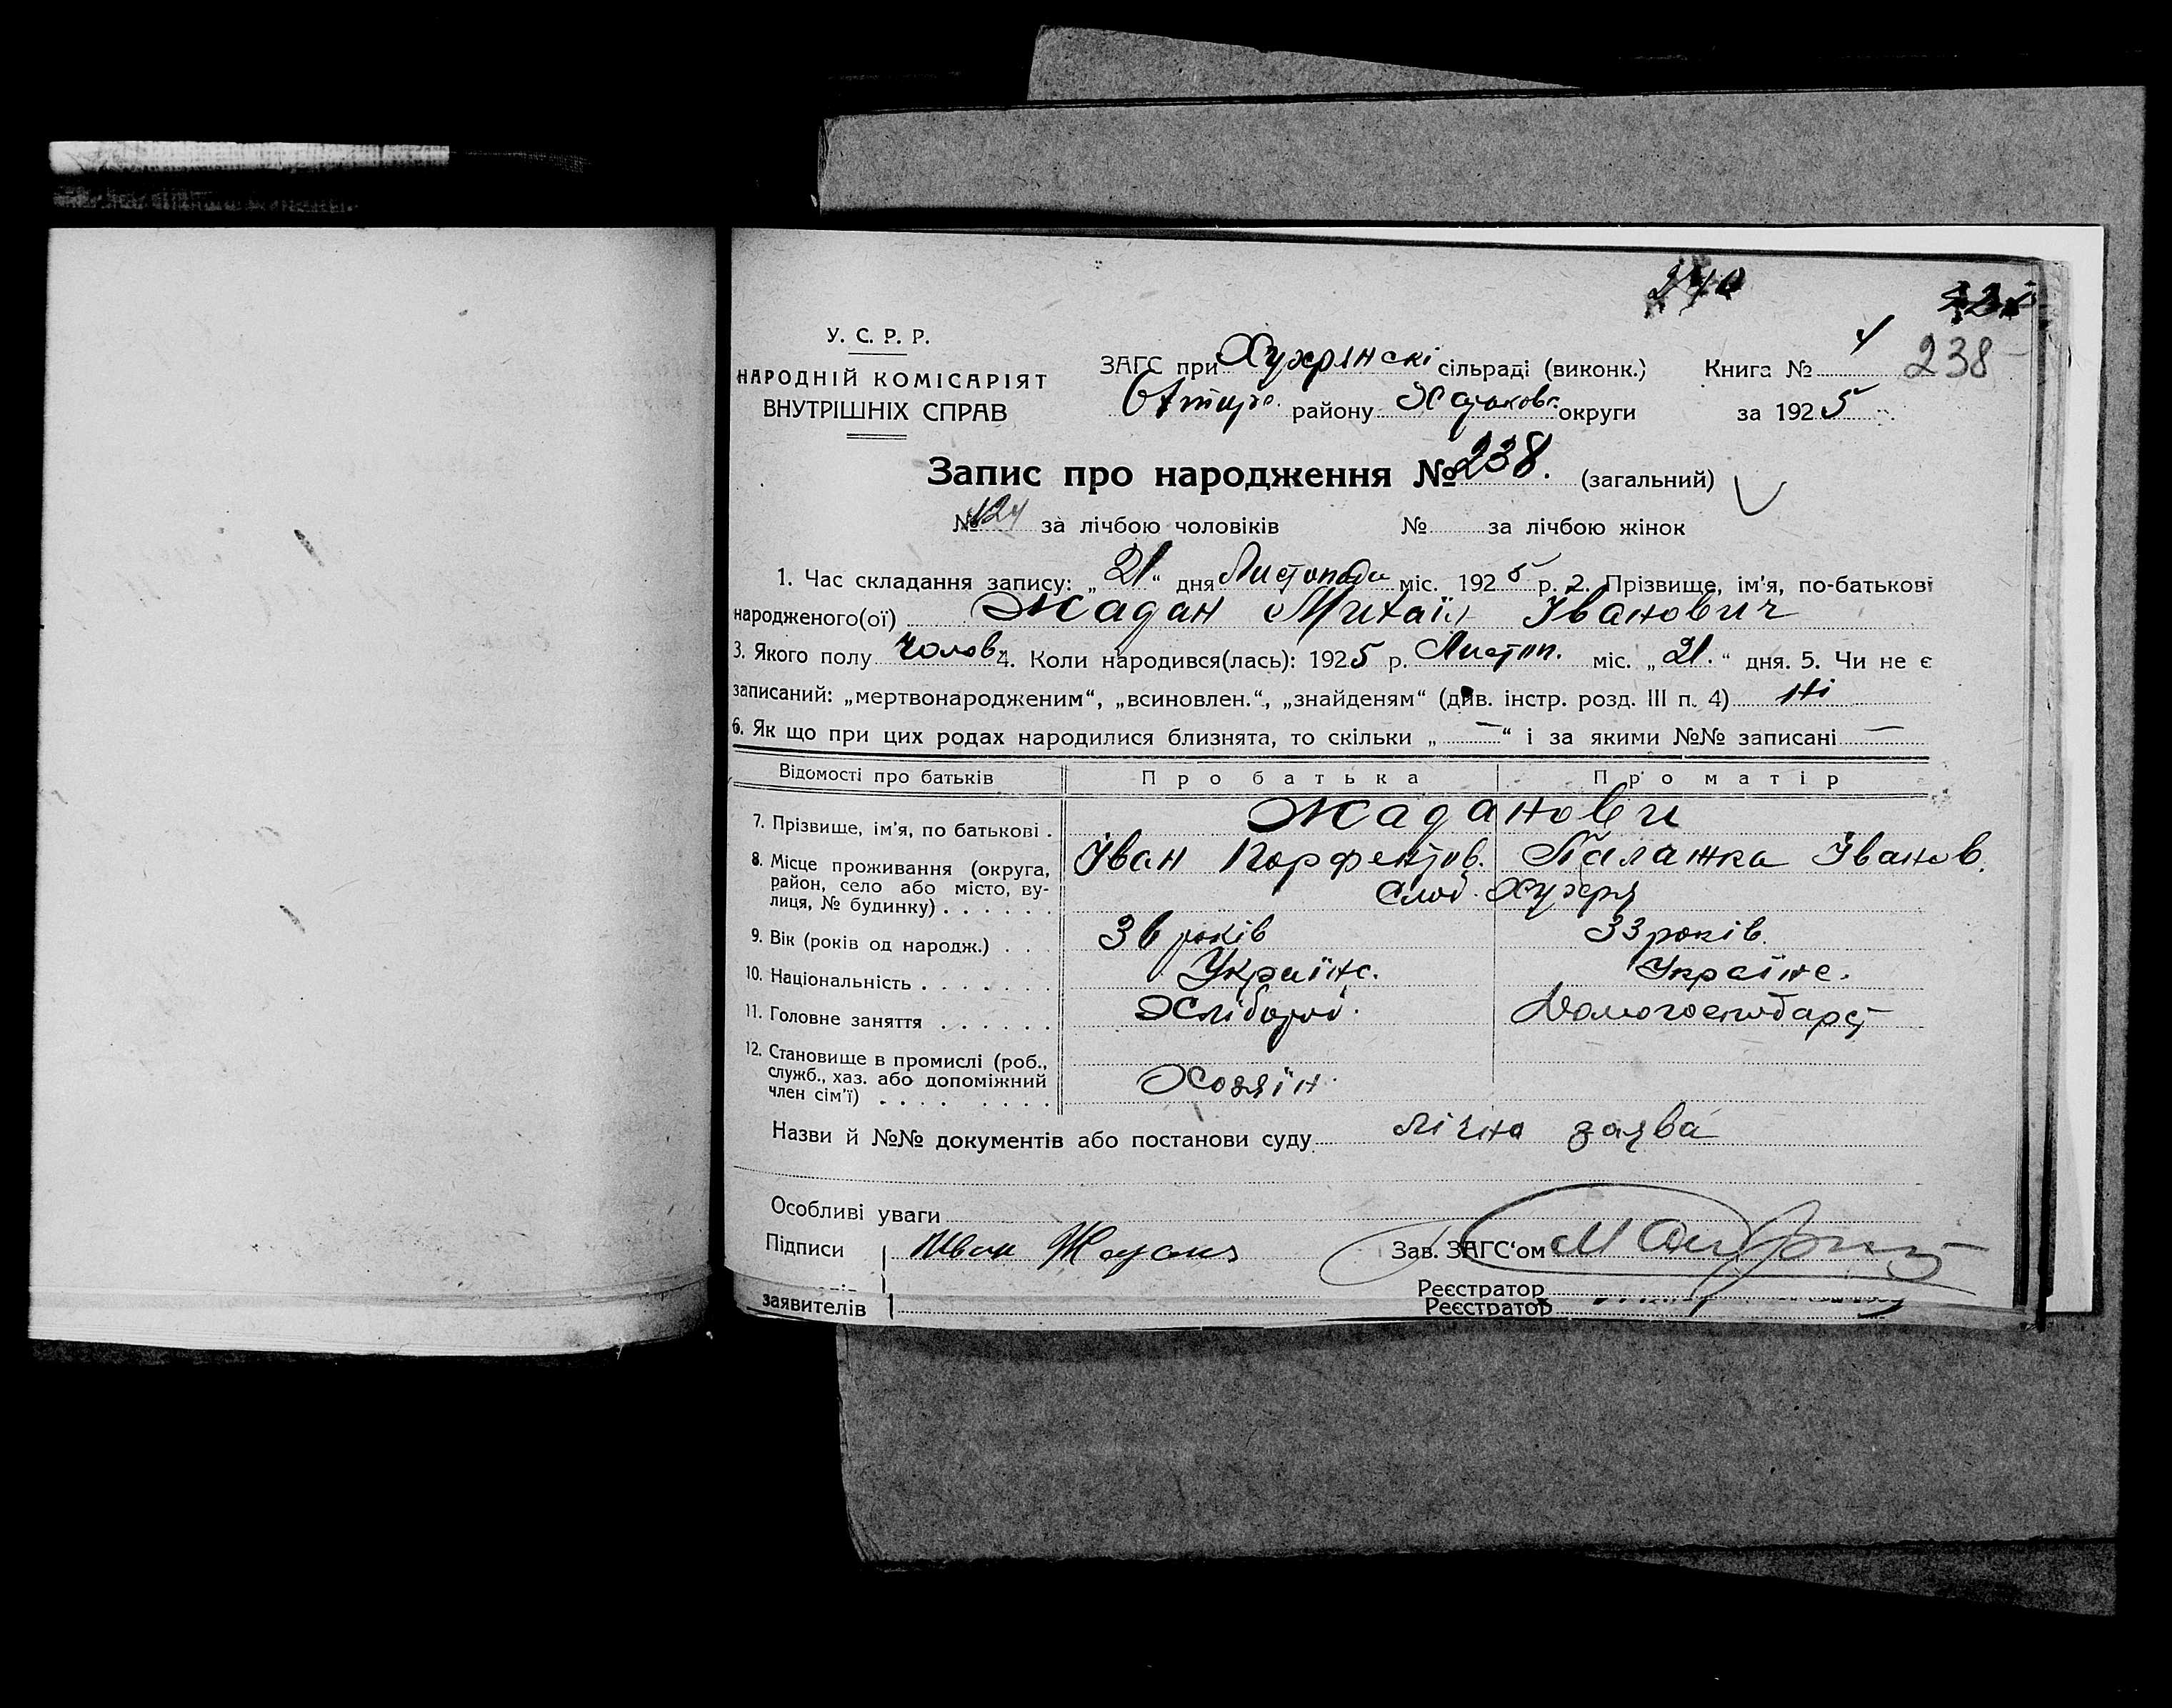 240
У. С. Р. Р.
НАРОДНІЙ КОМІСАРІЯТ
ВНУТРІШНІХ СПРАВ
ЗАГС при Хухрянскі сільраді (виконк.) Книга № 4 238
Охтир. району Харьков. округи за 1925
Запис про народження № 238. (загальний)
№ 124 за лічбою чоловіків № за лічбою жінок
1. Час складання запису: „21“ дня Листопада міс. 1925 р. 2. Прізвище, ім'я, по-батькові
народженого(ої) Жадан Михаїл Іванович
3. Якого полу Чолов. 4. Коли народився(лась): 1925 р. Листоп. міс. „21.“ дня. 5. Чи не є
записаний: „мертвонародженим“, „всиновлен.“, „знайденям“ (див. інстр. розд. III п. 4) Ні
6. Як що при цих родах народилися близнята, то скільки „—“ і за якими №№ записані —
Відомості про батьків Про батька Про матір
7. Прізвище, ім'я, по батькові . Жаданови
Іван Порфентов. Палажка Іванов.
8. Місце проживання (округа,
район, село або місто, ву-
лиця, № будинку) . . . . . . Слоб. Хухря
9. Вік (років од народж.) . . . 36 років 33 років.
10. Національність . . . . . . . Україне. Україне.
11. Головне заняття . . . . . . Хлібороб. Домогосподарст
12. Становище в промислі (роб.,
служб., хаз. або допоміжний
член сім'ї) . . . . . . . . Хозяїн.
Назви й №№ документів або постанови суду лічна заява
Особливі уваги
Підписи Иван Жадан Зав. ЗАГС'ом
Реєстратор
заявителів Реєстратор